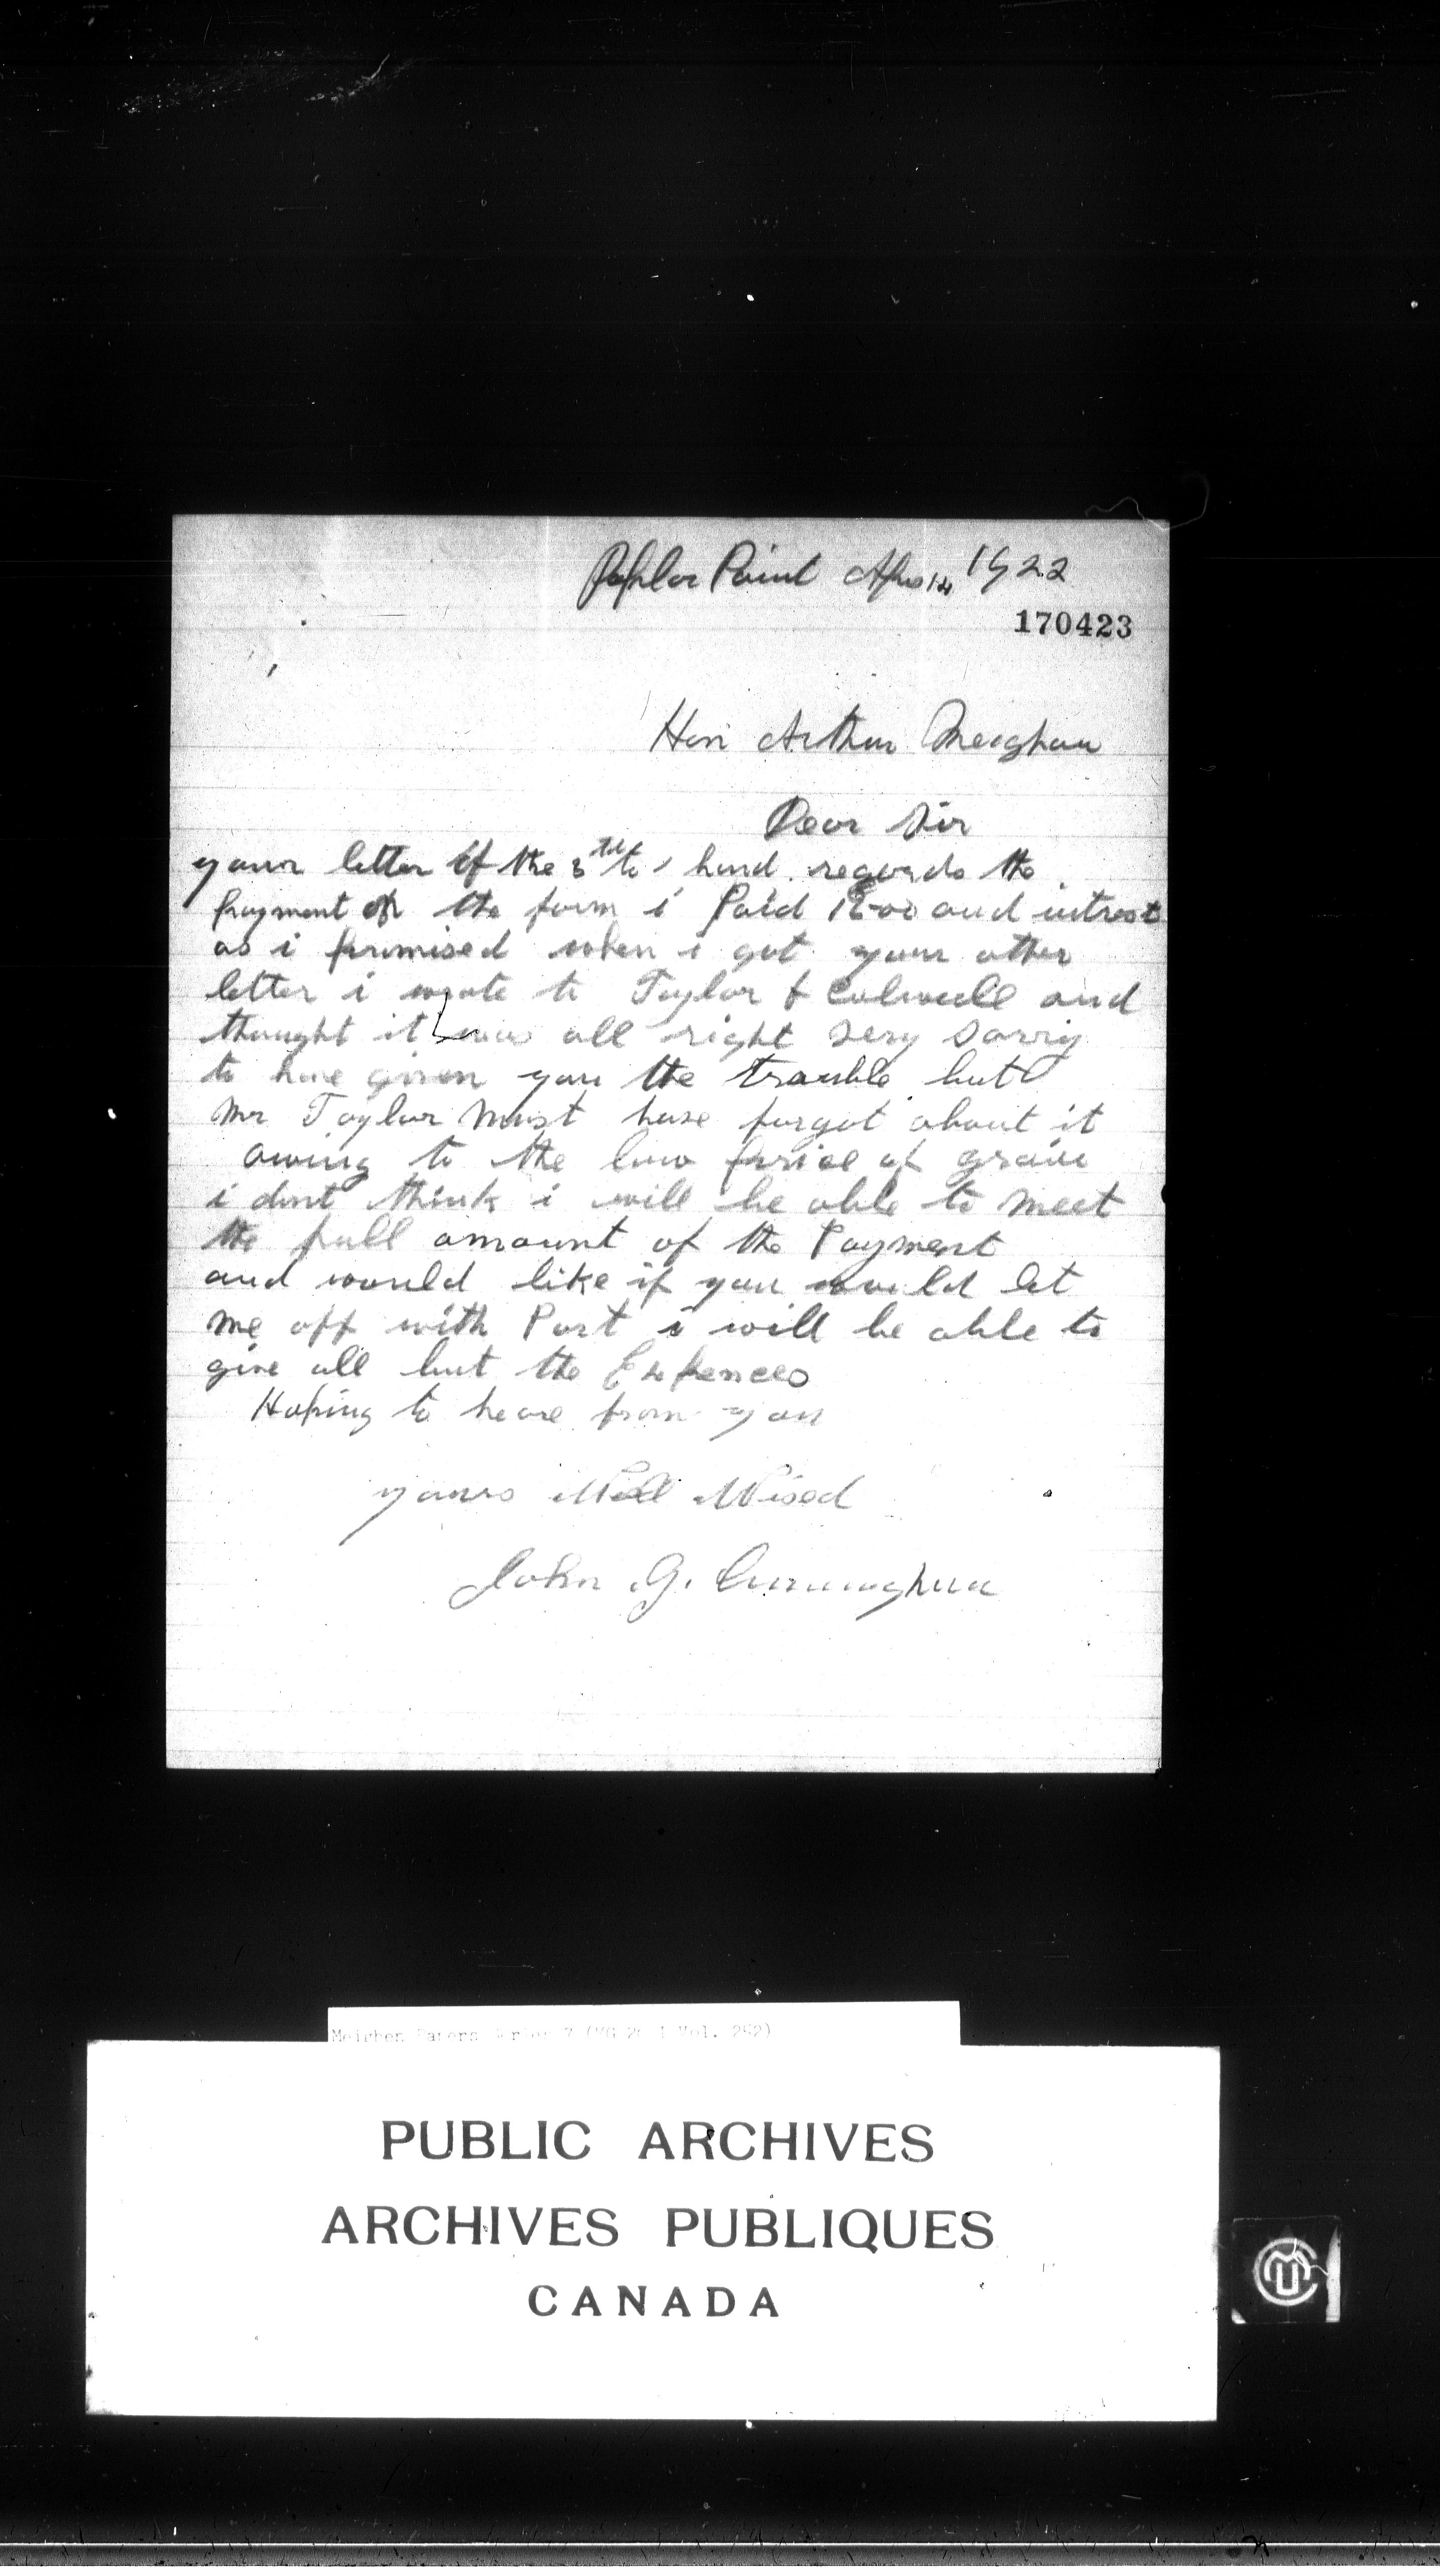 Poplar Point Apr 14 1922
170423
Hon Arthur Meighan
Dear Sir
your letter of the 8th to hand. regards the
payment of the farm i Paid and intrest
as i promised when i got your other
letter i wrote to Taylor & Colwell and
thought it was all right very sorry
to have given you the trouble but
Mr Taylor Must have forgot about it
owing to the low price of grain
i dont think i will be able to meet
the full amount of the Payment
and would like if you would let
me off with Part i will be able to
give all but the Expences
Hoping to heare from you
yours Well Wised
John G. Cunningham
Meighen Papers Series 7 (MG 26 I Vol. 292)
PUBLIC ARCHIVES
ARCHIVES PUBLIQUES
CANADA